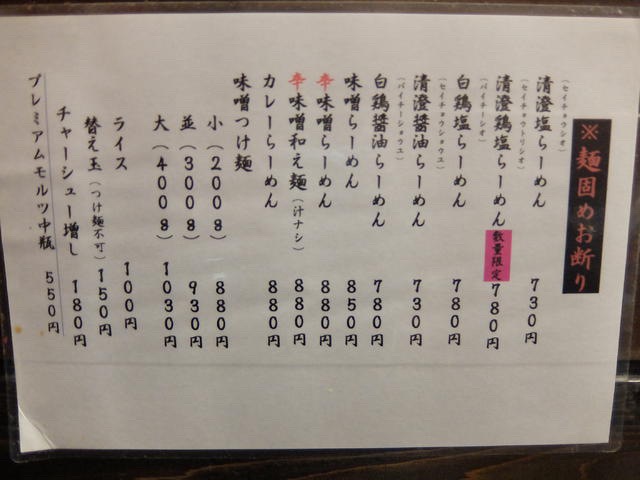 ※麺固めお断り
(セイチョウシオ)
清澄塩らーめん 730円
(セイチョウトリシオ)
清澄鶏塩らーめん 数量限定 780円
(パイチーシオ)
白鶏塩らーめん 780円
(セイチョウショウユ)
清澄醤油らーめん 730円
(パイチーショウユ)
白鶏醤油らーめん 780円
味噌らーめん 850円
辛味噌らーめん 880円
辛味噌和え麺(汁ナシ) 880円
カレーらーめん 880円
味噌つけ麺
小(200g) 880円
並(300g) 930円
大(400g) 1030円
ライス 100円
替え玉(つけ麺不可) 150円
チャーシュー増し 180円
プレミアムモルツ中瓶 550円